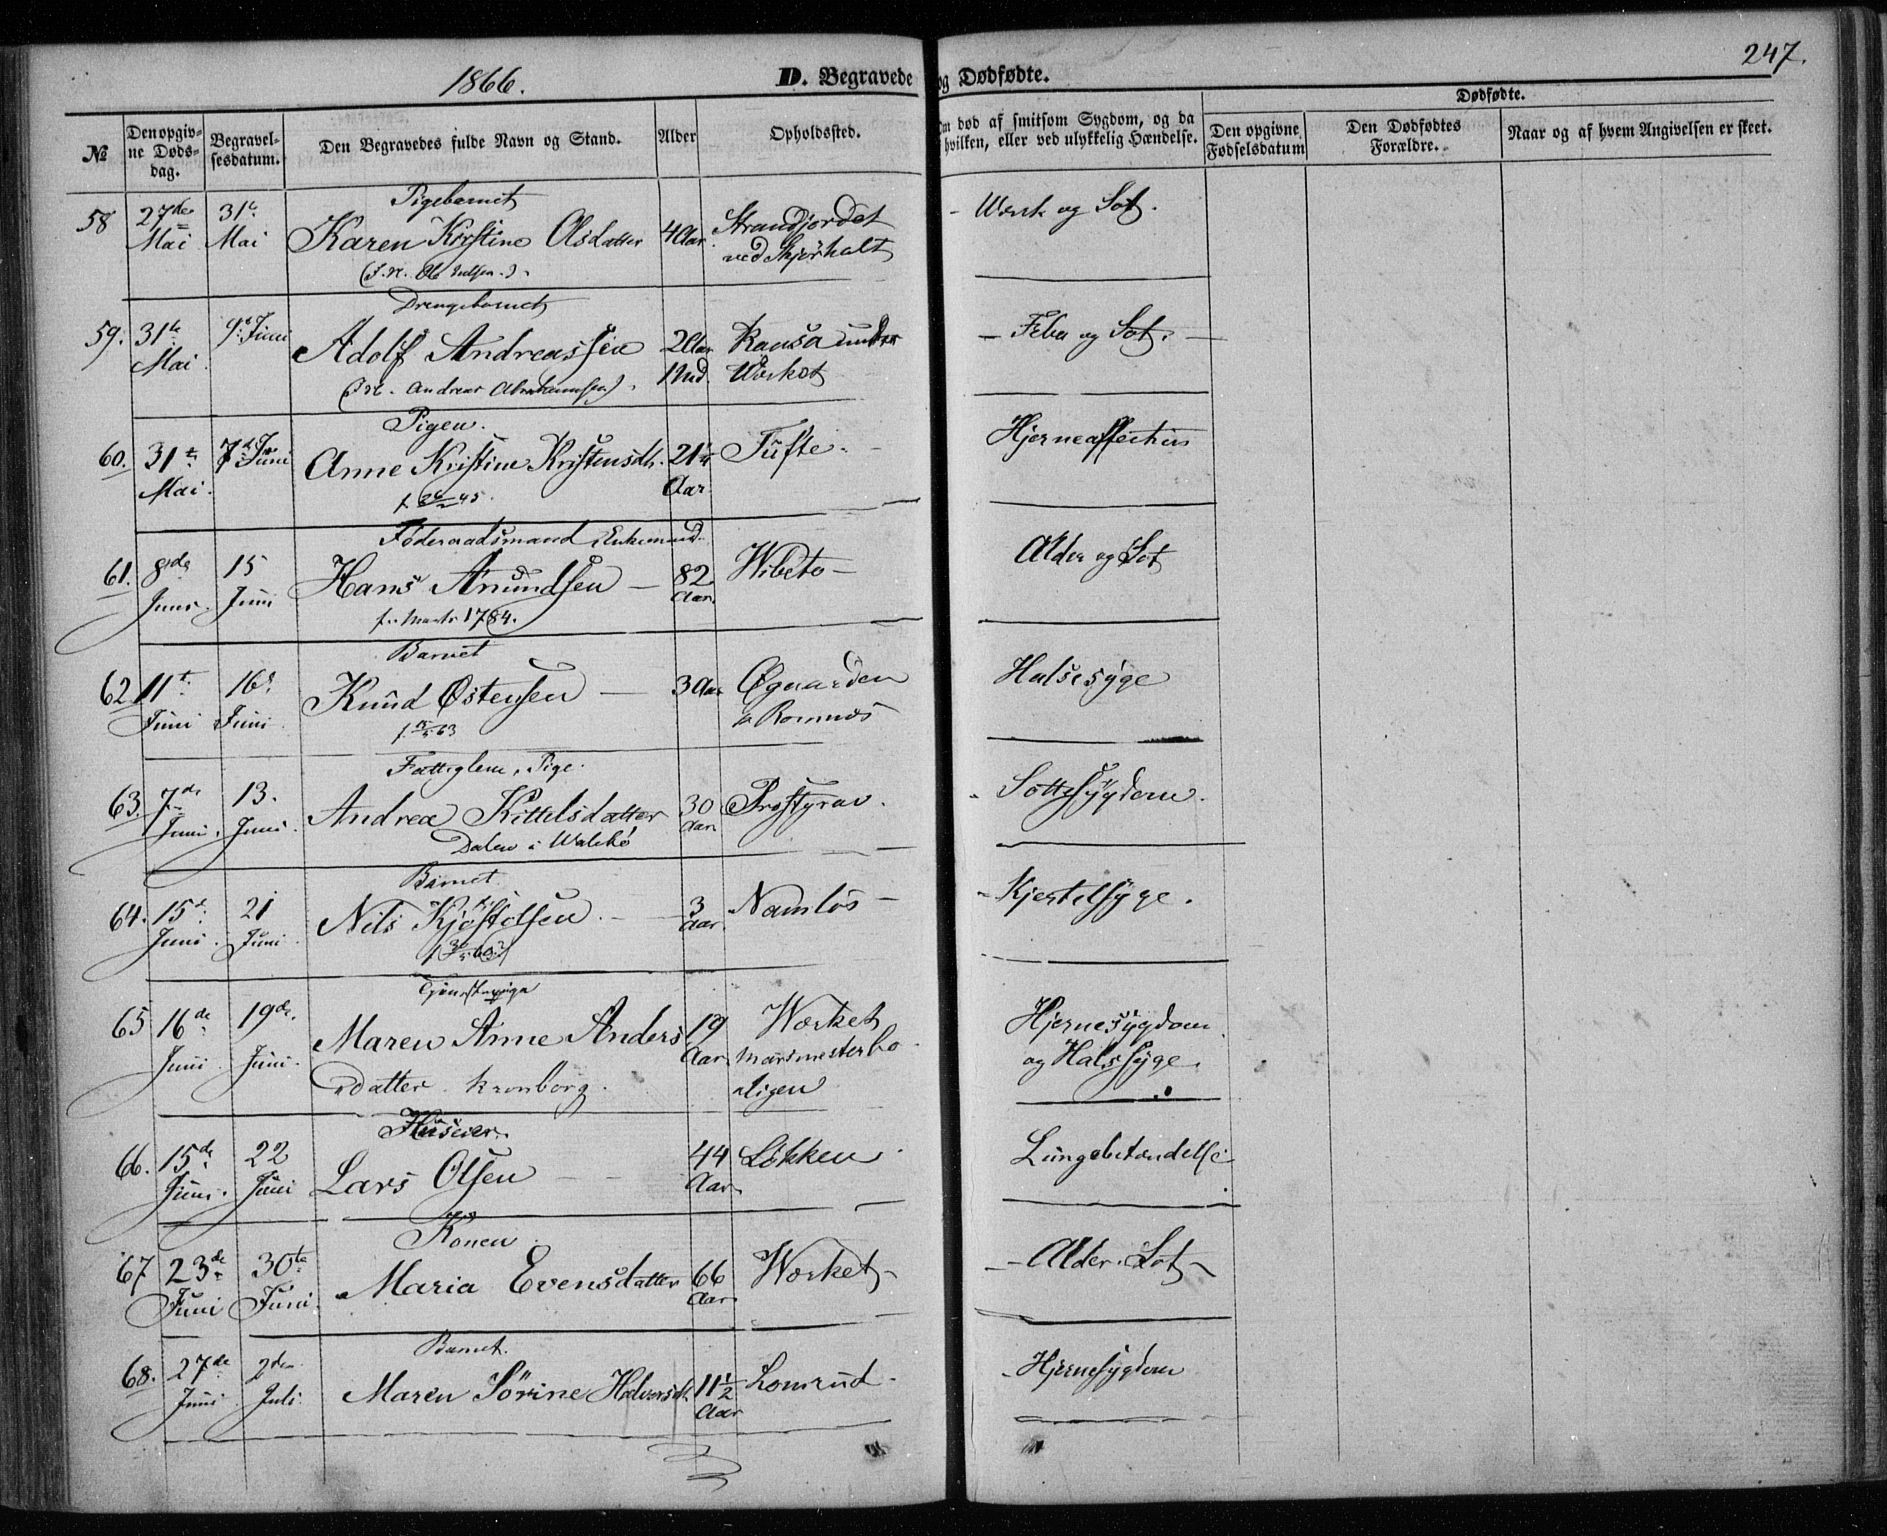 1866.
D. Begravede og Dødfødte.
247.
№
Den opgivne Dødsdag.
Begravelsesdatum.
Den Begravedes fulde Navn og Stand.
Alder
Opholdssted.
Om død af smitsom Sygdom, og da hvilken, eller ved ulykkelig Hændelse.
Dødfødte.
Den opgivne Fødselsdatum
Den Dødfødtes Forældre.
Naar og af hvem Angivelsen er skeet.
Pigebarnet
58 27de Mai 31te Mai Karen Kirstine Olsdatter 4 Aar Strandjordet ved Skjørholt - Værk og Sot.
Drengebarnet
59. 31te Mai Juni Adolf Andreassen 2 Aar 1 Md. Ransa under Værket - Feber og Sot. -
Andreas Abrahamsen).
Pigen.
60. 31te Mai. 7de Juni Anne Kristine Kristensdtr. 21 1/4 Aar Tufte. - Hjerneaffection
45.
Føderaadsmand, Enkemand
61. 8de Juni. 15 Juni Hans Amundsen - 82 Aar. Wibeto - Alder og Sot
f. Marts 1784.
Barnet
62 11te Juni 16de Juni Knud Østensen - 3 Aar Øgaarden v Romnæs Halsesyge
63
Fattiglem, Pige.
63. 7de Juni. 13. Juni. Andrea Kittelsdatter 30 Aar Prestgrav. - Sottesygdom.
Dalen i Walebø
Barnet.
64. 15de Juni. 21 Juni. Nils Kjøstolsen. - 3 Aar. Namløs - - Kjertelsyge.
Tjenestepige
65 16de Juni. 19de. Juni. Maren Anne Anders 19 Aar Værket Hjernesygdom
datter. Kronborg. Marsmesterboligen og Halssyge.
Huseier.
66. 15de Juni. 22 Juni Lars Olsen - - 44 Aar. Løkken. Lungebetændelse
Konen
67 23de Juni 30te Juni. Maria Evensdatter 66 Aar. Værket - - Alder. Sot -
Barnet.
68. 27de Juni 2den Juli. Maren Sørine Halvorsdt. 11 1/2 Aar Lomrud. - Hjernesygdom